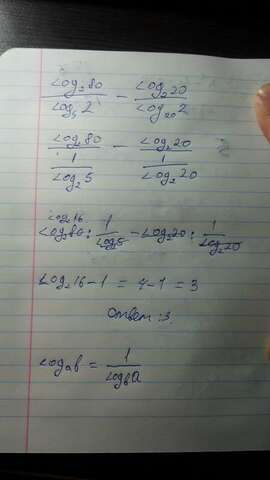 log₂80 / log₅2 − log₂20 / log₂₀2
log₂80 / (1 / log₂5) − log₂20 / (1 / log₂20)
log₂16
log₂80 : 1 / log₂5 − log₂20 : 1 / log₂20
log₂16 − 1 = 4 − 1 = 3
Ответ: 3.
logₐb = 1 / log_b a